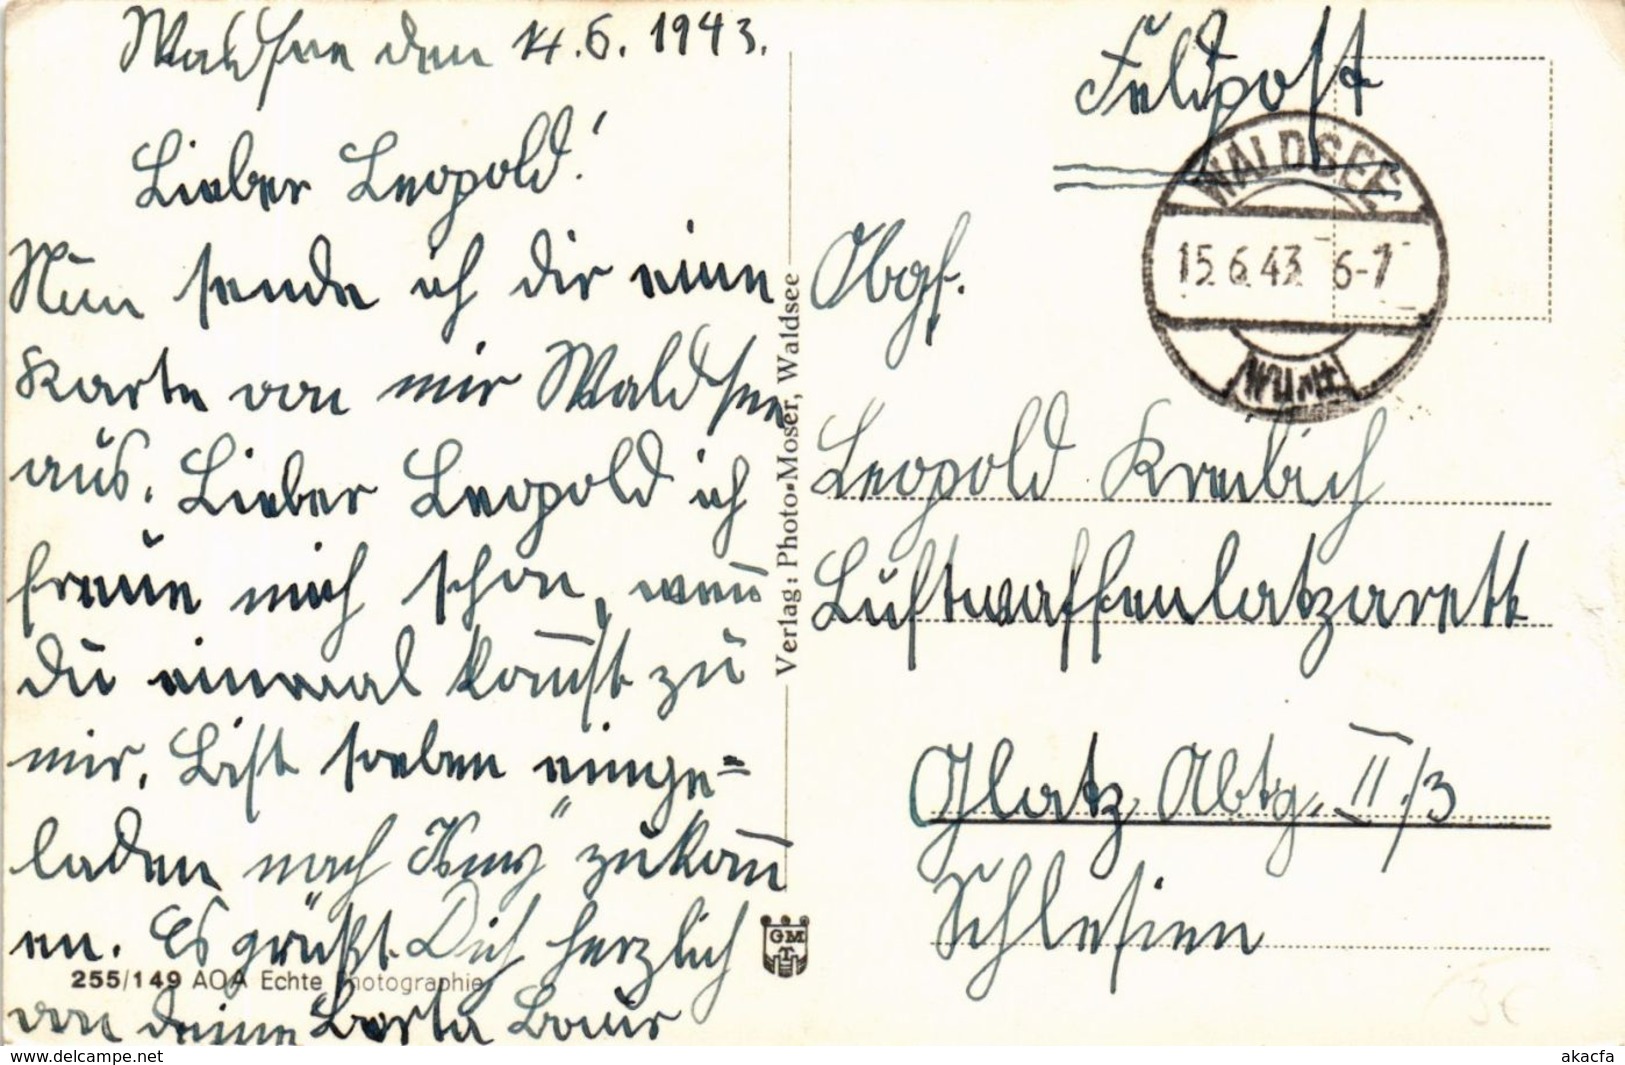 Waldsee den 14.6.1943.
Lieber Leopold!
Nun sende ich dir eine
Karte von mir Waldsee
aus. Lieber Leopold ich
freue mich schon, wen̄
du einmal kom̄st zu
mir. Bist soeben einge=
laden nach " zu kom̄
en. Es grüßt Dich herzlich
von deine Berta Baur
255/149 AOA Echte Photographie
Verlag: Photo-Moser, Waldsee
GMT
Feldpost
WALDSEE
15.6.43 6-7
WÜRTT
Obgf.
Leopold Kreibich
Luftwaffenlatzarett
Glatz Abtg. II/3
Schlesien
www.delcampe.net
akacfa